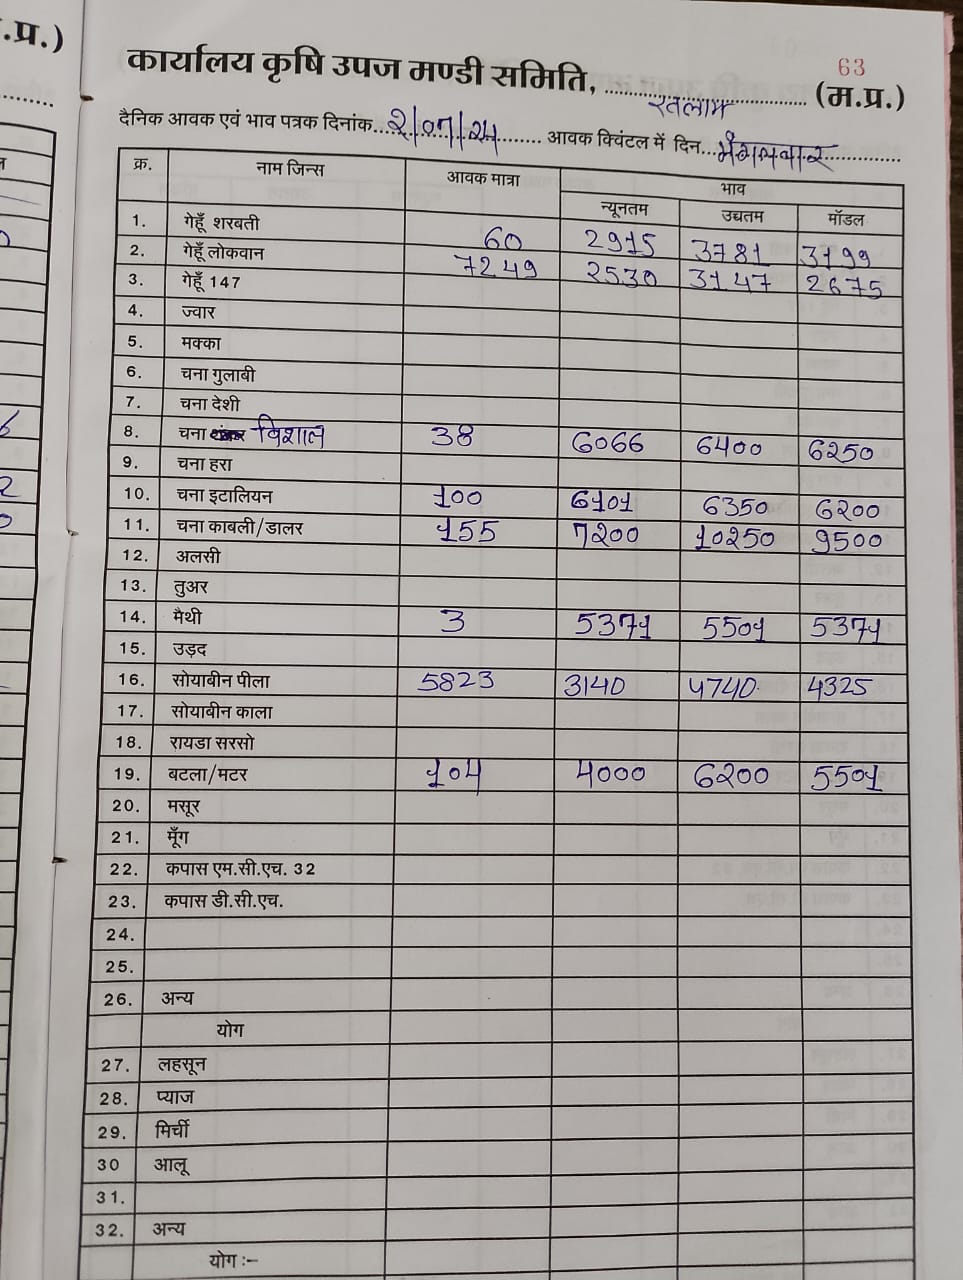 .प्र.)
63
कार्यालय कृषि उपज मण्डी समिति, रतलाम (म.प्र.)
दैनिक आवक एवं भाव पत्रक दिनांक 2/07/24 आवक क्विंटल में दिन मंगलवार
क्र. नाम जिन्स आवक मात्रा भाव
न्यूनतम उच्चतम मॉडल
1. गेहूँ शरबती 60 2915 3781 3199
2. गेहूँ लोकवान 7249 2530 3147 2675
3. गेहूँ 147
4. ज्वार
5. मक्का
6. चना गुलाबी
7. चना देशी
8. चना विशाल 38 6066 6400 6250
9. चना हरा
10. चना इटालियन 100 6101 6350 6200
11. चना काबली/डालर 155 7200 10250 9500
12. अलसी
13. तुअर
14. मैथी 3 5371 5501 5371
15. उड़द
16. सोयाबीन पीला 5823 3140 4740 4325
17. सोयाबीन काला
18. रायडा सरसो
19. बटला/मटर 104 4000 6200 5501
20. मसूर
21. मूँग
22. कपास एम.सी.एच. 32
23. कपास डी.सी.एच.
24.
25.
26. अन्य
योग
27. लहसून
28. प्याज
29. मिर्ची
30 आलू
31.
32. अन्य
योग :-